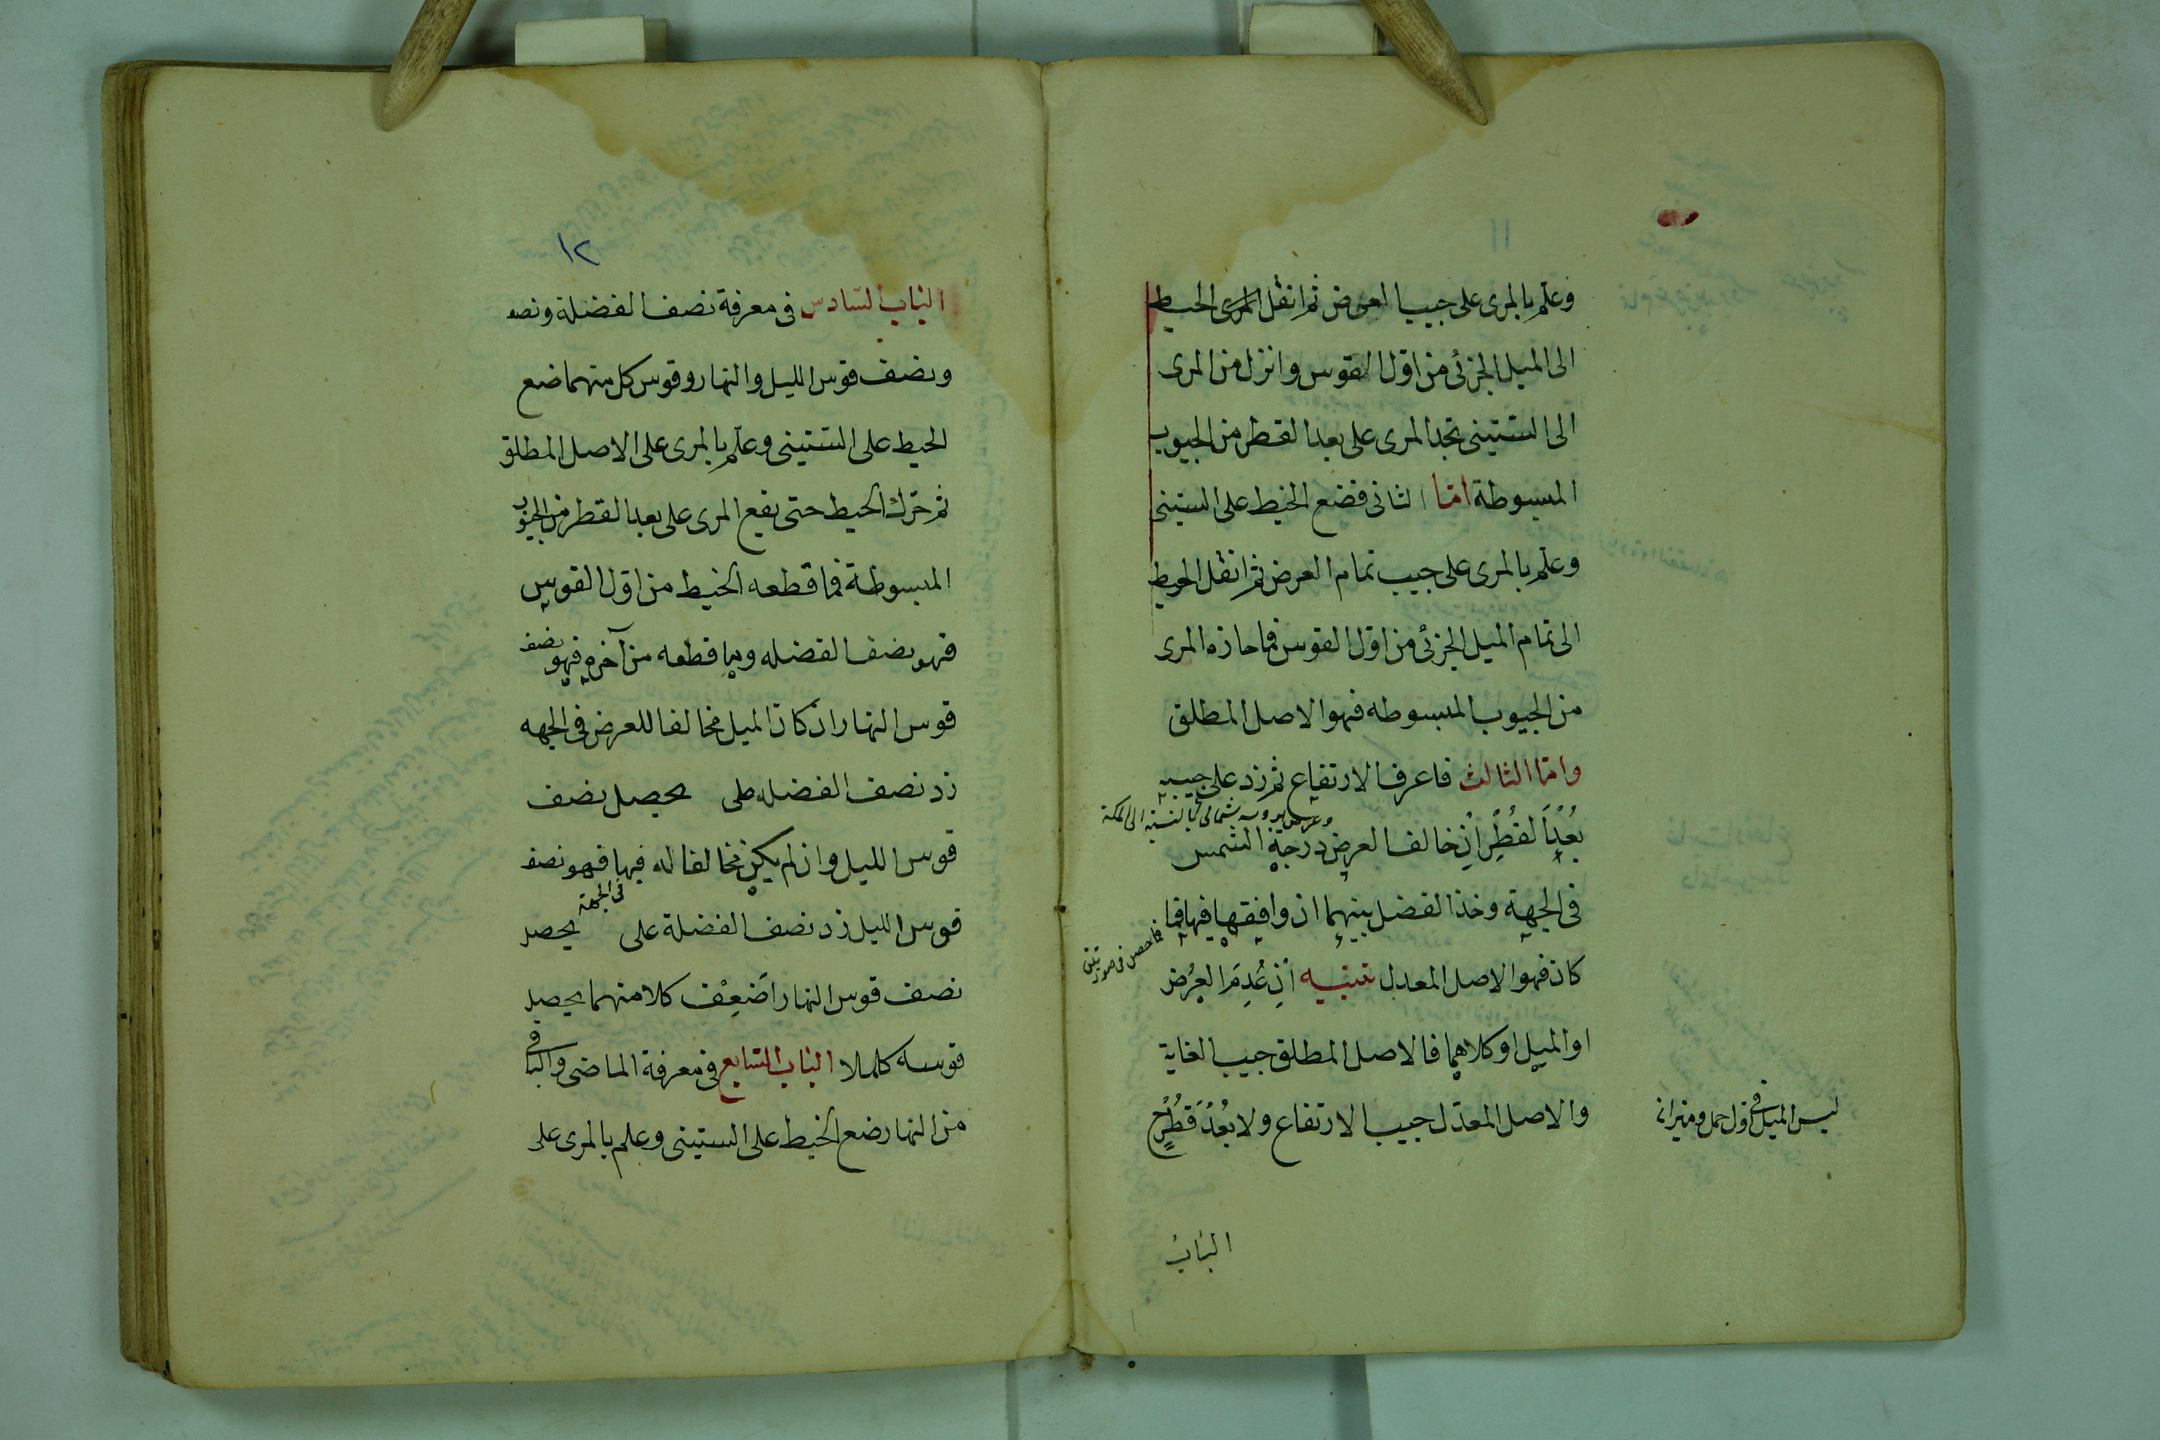 وعلم بالمرى على جيب العرض ثم انقل المرى الخيط
الى الميل الجزئى من اول القوس وانزل من المرى
الى الستينى تجد المرى على بعد القطر من الجيوب
المبسوطة امّا الثانى فضع الخيط على الستينى
وعلّم بالمرى على جيب تمام العرض ثم انقل الخيط
الى تمام الميل الجزئى من اوّل القوس فما حازه المرى
من الجيوب المبسوطه فهو الاصل المطلق
وامّا الثالث فاعرف الارتفاع ثم زد على جيبه
بُعْدَ القُطْرِ اِنْ خالف العرض درجة الشمس
فى الجهة وخذ الفضل بينهما ان وافقها فيها فما
كان فهو الاصل المعدل تنبيه اِنْ عُدِمَ العرْض
او الميل او كلاهما فالاصل المطلق جيب الغاية
والاصل المعدّل جيب الارتفاع ولا بُعْدَ قُطْرٍ ح
ليس الميل فى اول حمل وميزان
الباب
١٢
الباب السادس فى معرفة نصف الفضلة ونصـ
ونصف قوس الليل والنهار وقوس كل منهما ضع
الخيط على الستينى وعلّم بالمرى على الاصل المطلق
ثم حرك الخيط حتى يقع المرى على بعد القطر من الجيوب
المبسوطة فما قطعه الخيط من اوّل القوس
فهو نصف الفضله وما قطعه من آخره فهو نصف
قوس النهار ان كان الميل مخالفا للعرض فى الجهه
زد نصف الفضله على يحصل نصف
قوس الليل وان لم يكن مخالفا له فيها فهو نصف
فى الجهة
قوس الليل زد نصف الفضلة على يحصل
نصف قوس النهار اَضْعِفْ كلا منهما يحصل
قوسه كاملا الباب السابع فى معرفة الماضى والباقى
من النهار ضع الخيط على الستينى وعلم بالمرى على